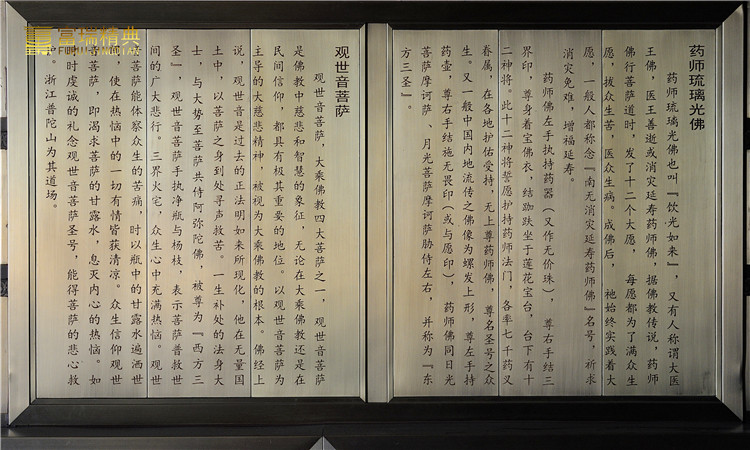 富瑞精典
药师琉璃光佛
药师琉璃光佛也叫『饮光如来』，又有人称谓大医
王佛，医王善逝或消灾延寿药师佛，据佛教传说，药师
佛行菩萨道时，发了十二个大愿，每愿都为了满众生
愿，拔众生苦，医众生病。成佛后，祂始终实践着大
愿，一般人都称念『南无消灾延寿药师佛』名号，祈求
消灾免难，增福延寿，
药师佛左手执持药器（又作无价珠），尊右手结三
界印，尊身着宝佛衣，结跏趺坐于莲花宝台，台下有十
二神将。此十二神将誓愿护持药师法门，各率七千药叉
眷属，在各地护佑受持，无上尊药师佛，尊名圣号之众
生。又一般中国内地流传之佛像为螺发上形，尊左手持
药壶，尊右手结施无畏印（或与愿印），药师佛同日光
菩萨摩诃萨、月光菩萨摩诃萨胁侍左右，并称为『东
方三圣』。
观世音菩萨
观世音菩萨，大乘佛教四大菩萨之一，观世音菩萨
是佛教中慈悲和智慧的象征，无论在大乘佛教还是在
民间信仰，都具有极其重要的地位。以观世音菩萨为
主导的大慈悲精神，被视为大乘佛教的根本。佛经上
说，观世音是过去的正法明如来所现化，他在无量国
土中，以菩萨之身到处寻声救苦。一生补处的法身大
士，与大势至菩萨共侍阿弥陀佛，被尊为『西方三
圣』，观世音菩萨手执净瓶与杨枝，表示菩萨普救世
间的广大悲行。三界火宅，众生心中充满热恼。观世
菩萨能体察众生的苦痛，时以瓶中的甘露水遍洒世
，使在热恼中的一切有情皆获清凉。众生信仰观世
菩萨，即渴求菩萨的甘露水，息灭内心的热恼。如
时虔诚的礼念观世音菩萨圣号，能得菩萨的悲心救
。浙江普陀山为其道场。